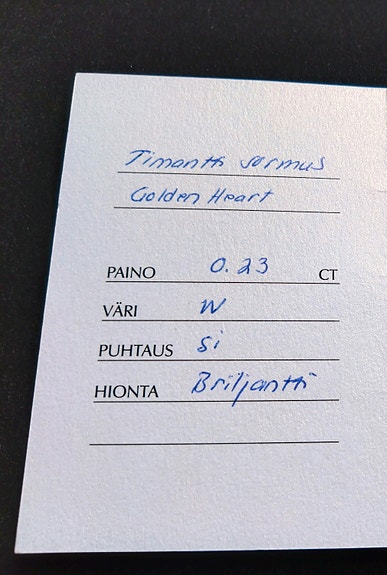 Timantti sormus
Golden Heart
PAINO 0.23 CT
VÄRI W
PUHTAUS Si
HIONTA Briljantti